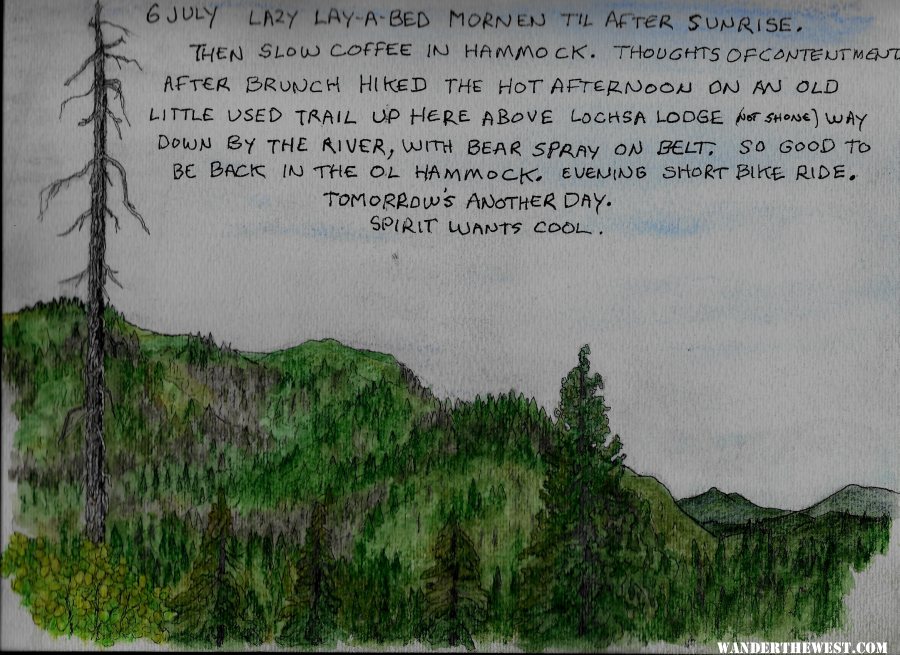 6 JULY LAZY LAY-A-BED MORNEN T'IL AFTER SUNRISE.
THEN SLOW COFFEE IN HAMMOCK. THOUGHTS OF CONTENTMENT
AFTER BRUNCH HIKED THE HOT AFTERNOON ON AN OLD
LITTLE USED TRAIL UP HERE ABOVE LOCHSA LODGE (NOT SHONE) WAY
DOWN BY THE RIVER, WITH BEAR SPRAY ON BELT. SO GOOD TO
BE BACK IN THE OL HAMMOCK. EVENING SHORT BIKE RIDE.
TOMORROW'S ANOTHER DAY.
SPIRIT WANTS COOL.
WANDERTHEWEST.COM